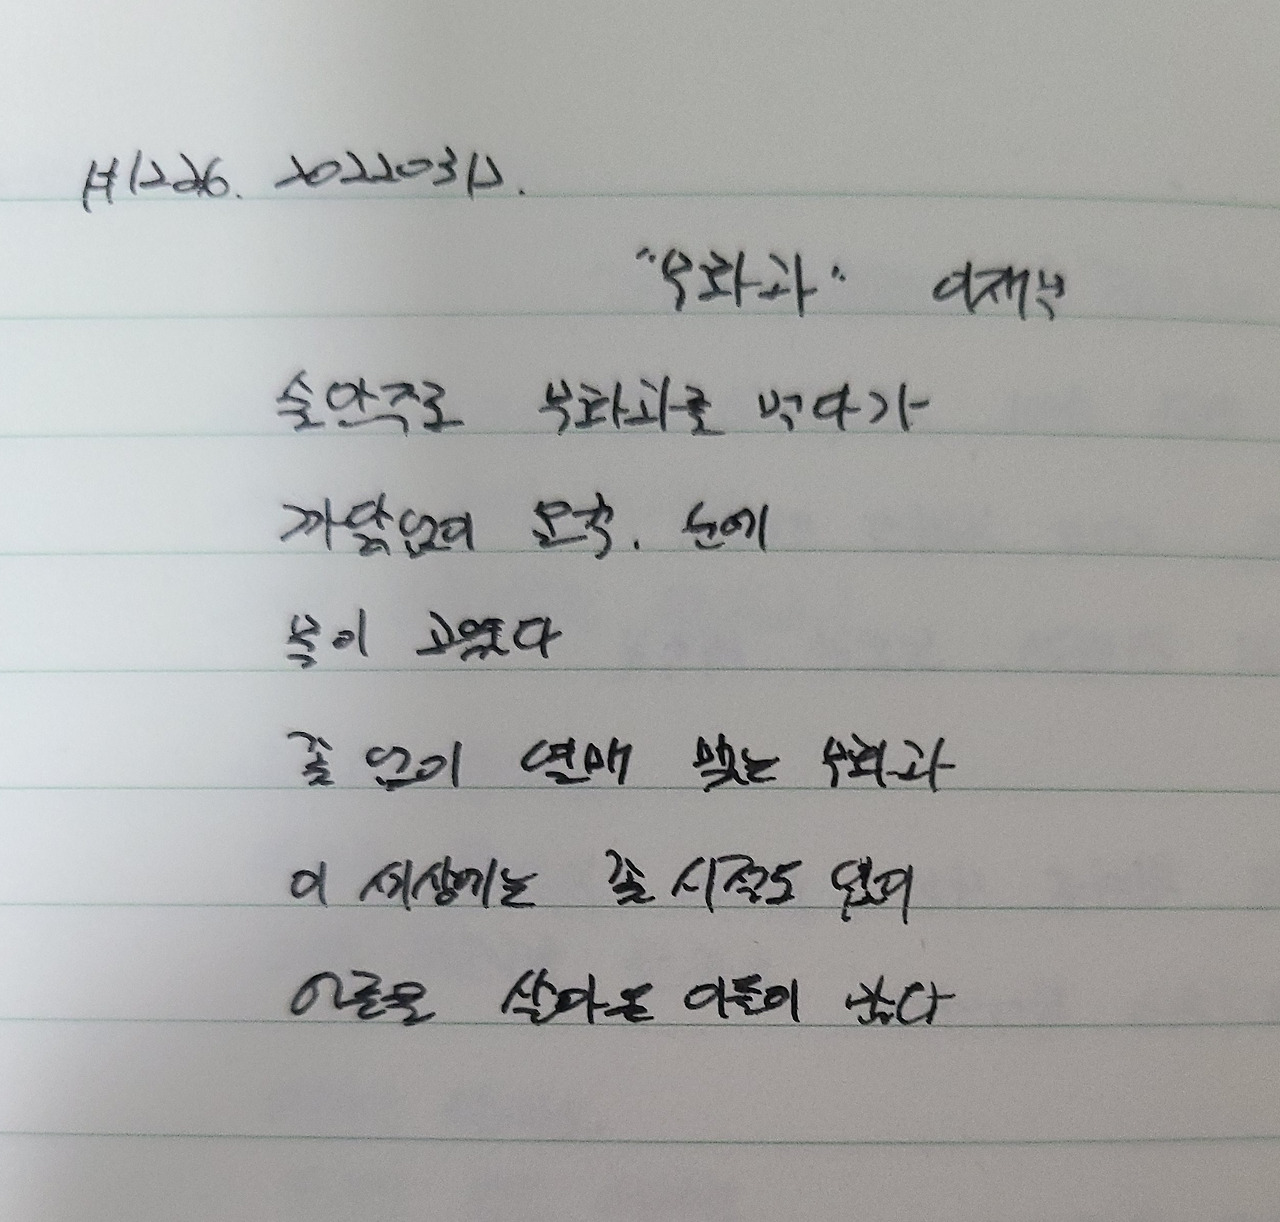 #1226. 20220312.
"무화과" 이재무
술안주로 무화과를 먹다가
까닭없이 문득, 눈에
물이 고였다
꽃 없이 열매 맺는 무화과
이 세상에는 꽃 시절도 없이
어른을 살아온 이들이 많다